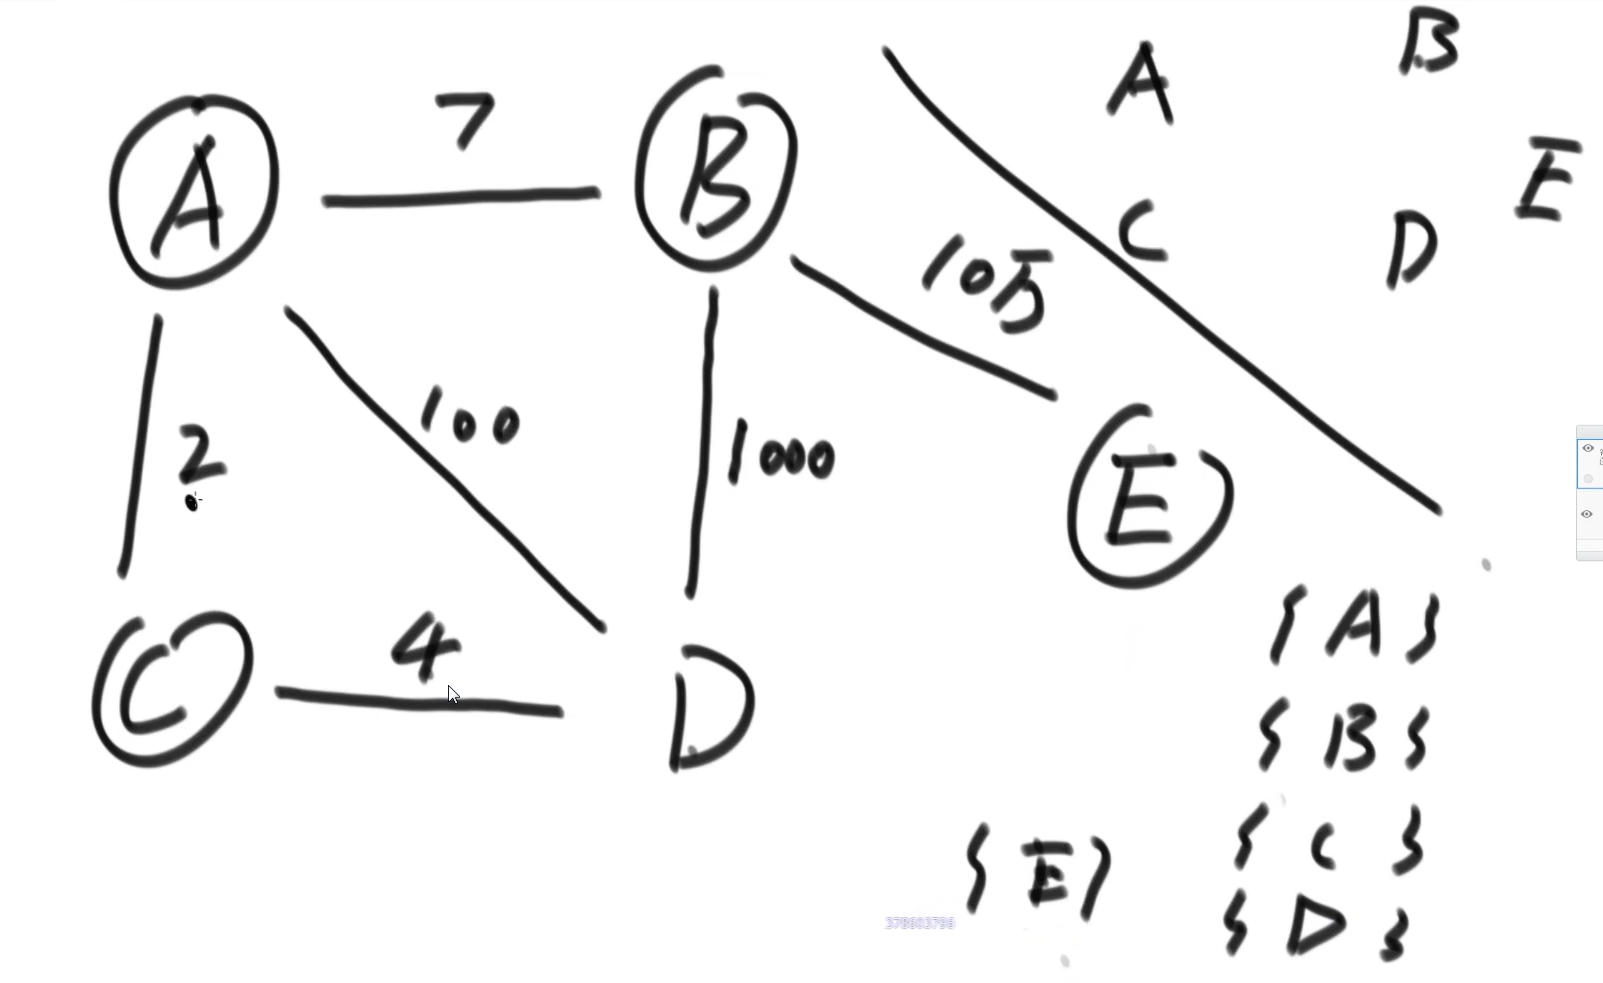 A
7
B
2
100
1000
10万
C
4
D
E
A
B
C
D
E
{A}
{B}
{C}
{D}
{E}
378603796